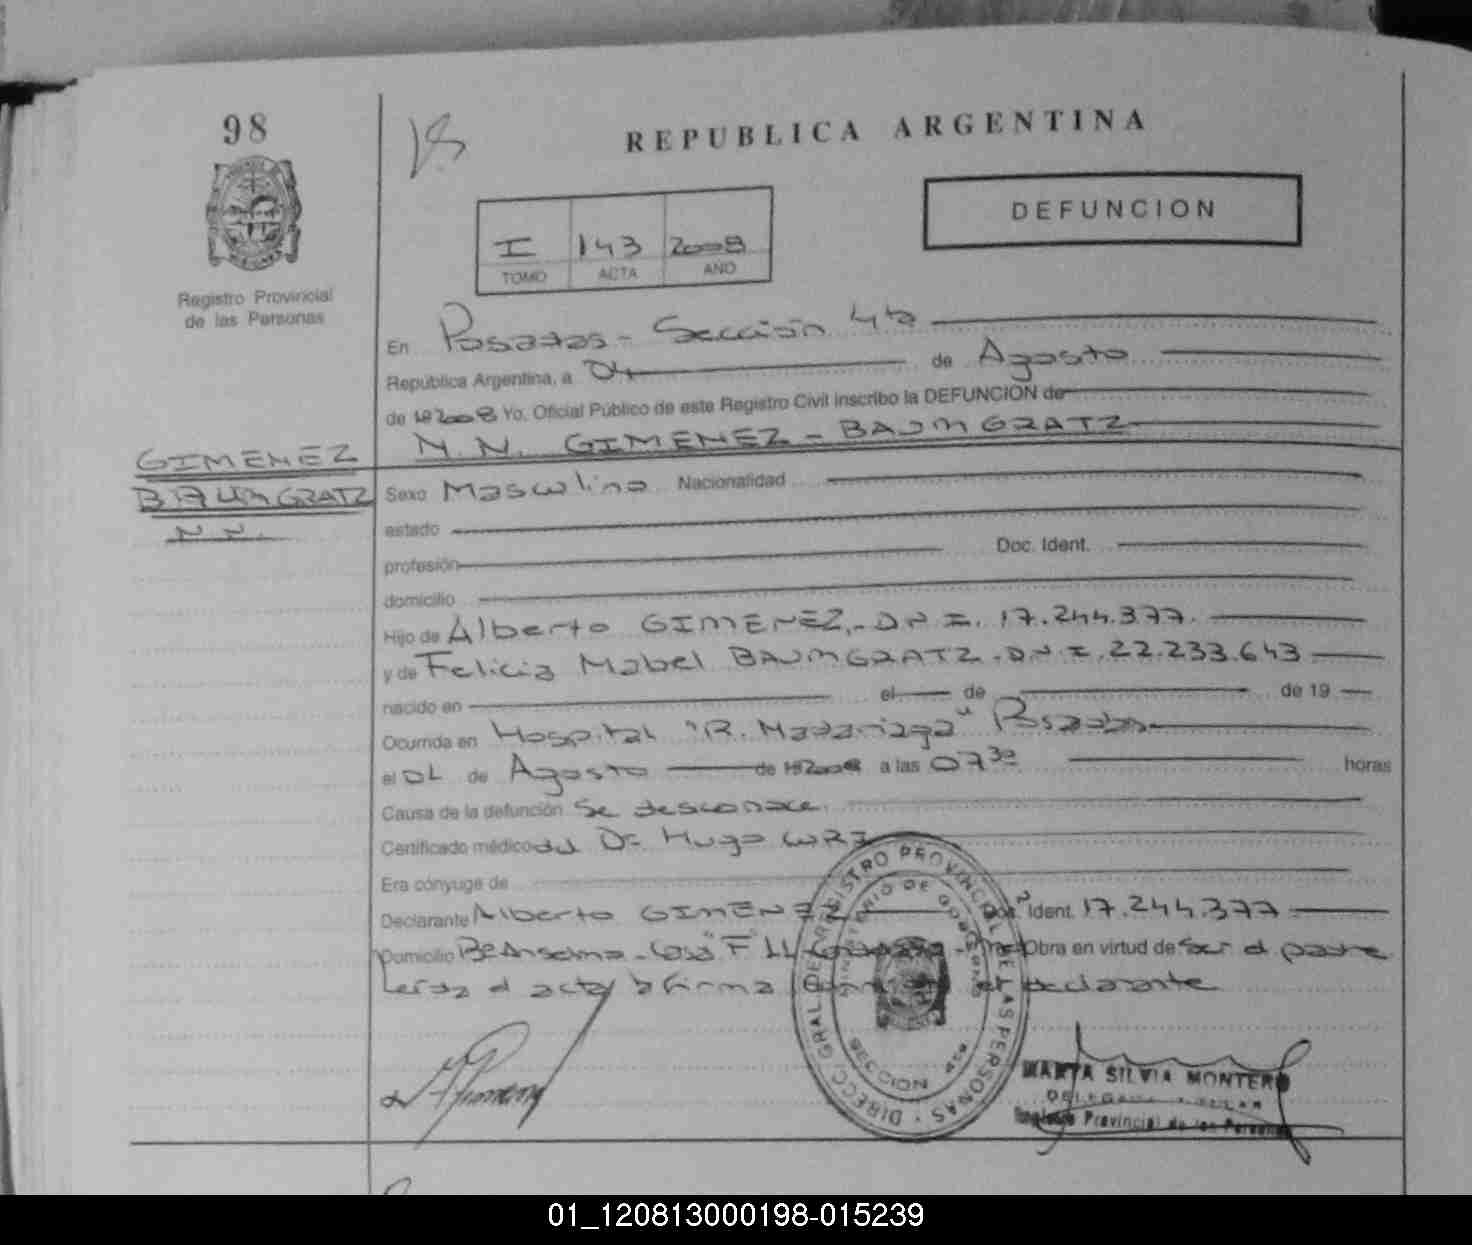 98
REPUBLICA ARGENTINA
DEFUNCION
I 143 2008
TOMO ACTA AÑO
Registro Provincial
de las Personas
En Posadas - Sección 4ta
República Argentina, a 04 de Agosto
de 19 2008 Yo, Oficial Público de este Registro Civil inscribo la DEFUNCION de
N.N. GIMENEZ - BAUMGRATZ
GIMENEZ
BAUMGRATZ
N.N.
Sexo Masculino Nacionalidad
estado
profesión Doc. Ident.
domicilio
Hijo de Alberto GIMENEZ,- DNI. 17.244.377.
y de Felicia Mabel BAUMGRATZ. DNI. 22.233.643
nacido en el de de 19
Ocurrida en Hospital "R. Madariaga" Posadas
el de Agosto de 19 2008 a las 07 30 horas
Causa de la defunción Se desconoce.
Certificado médico del Dr. Hugo
Era cónyuge de
Declarante Alberto GIMENEZ Doc. Ident. 17.244.377
Domicilio Obra en virtud de Ser el padre
Leída el acta, la firma el declarante
DIRECC. GRAL. DE REGISTRO PROVINCIAL DE LAS PERSONAS
MINISTERIO DE GOBIERNO
MARTA SILVIA MONTERO
DELEGADA TITULAR
Registro Provincial de las Personas
01_120813000198-015239